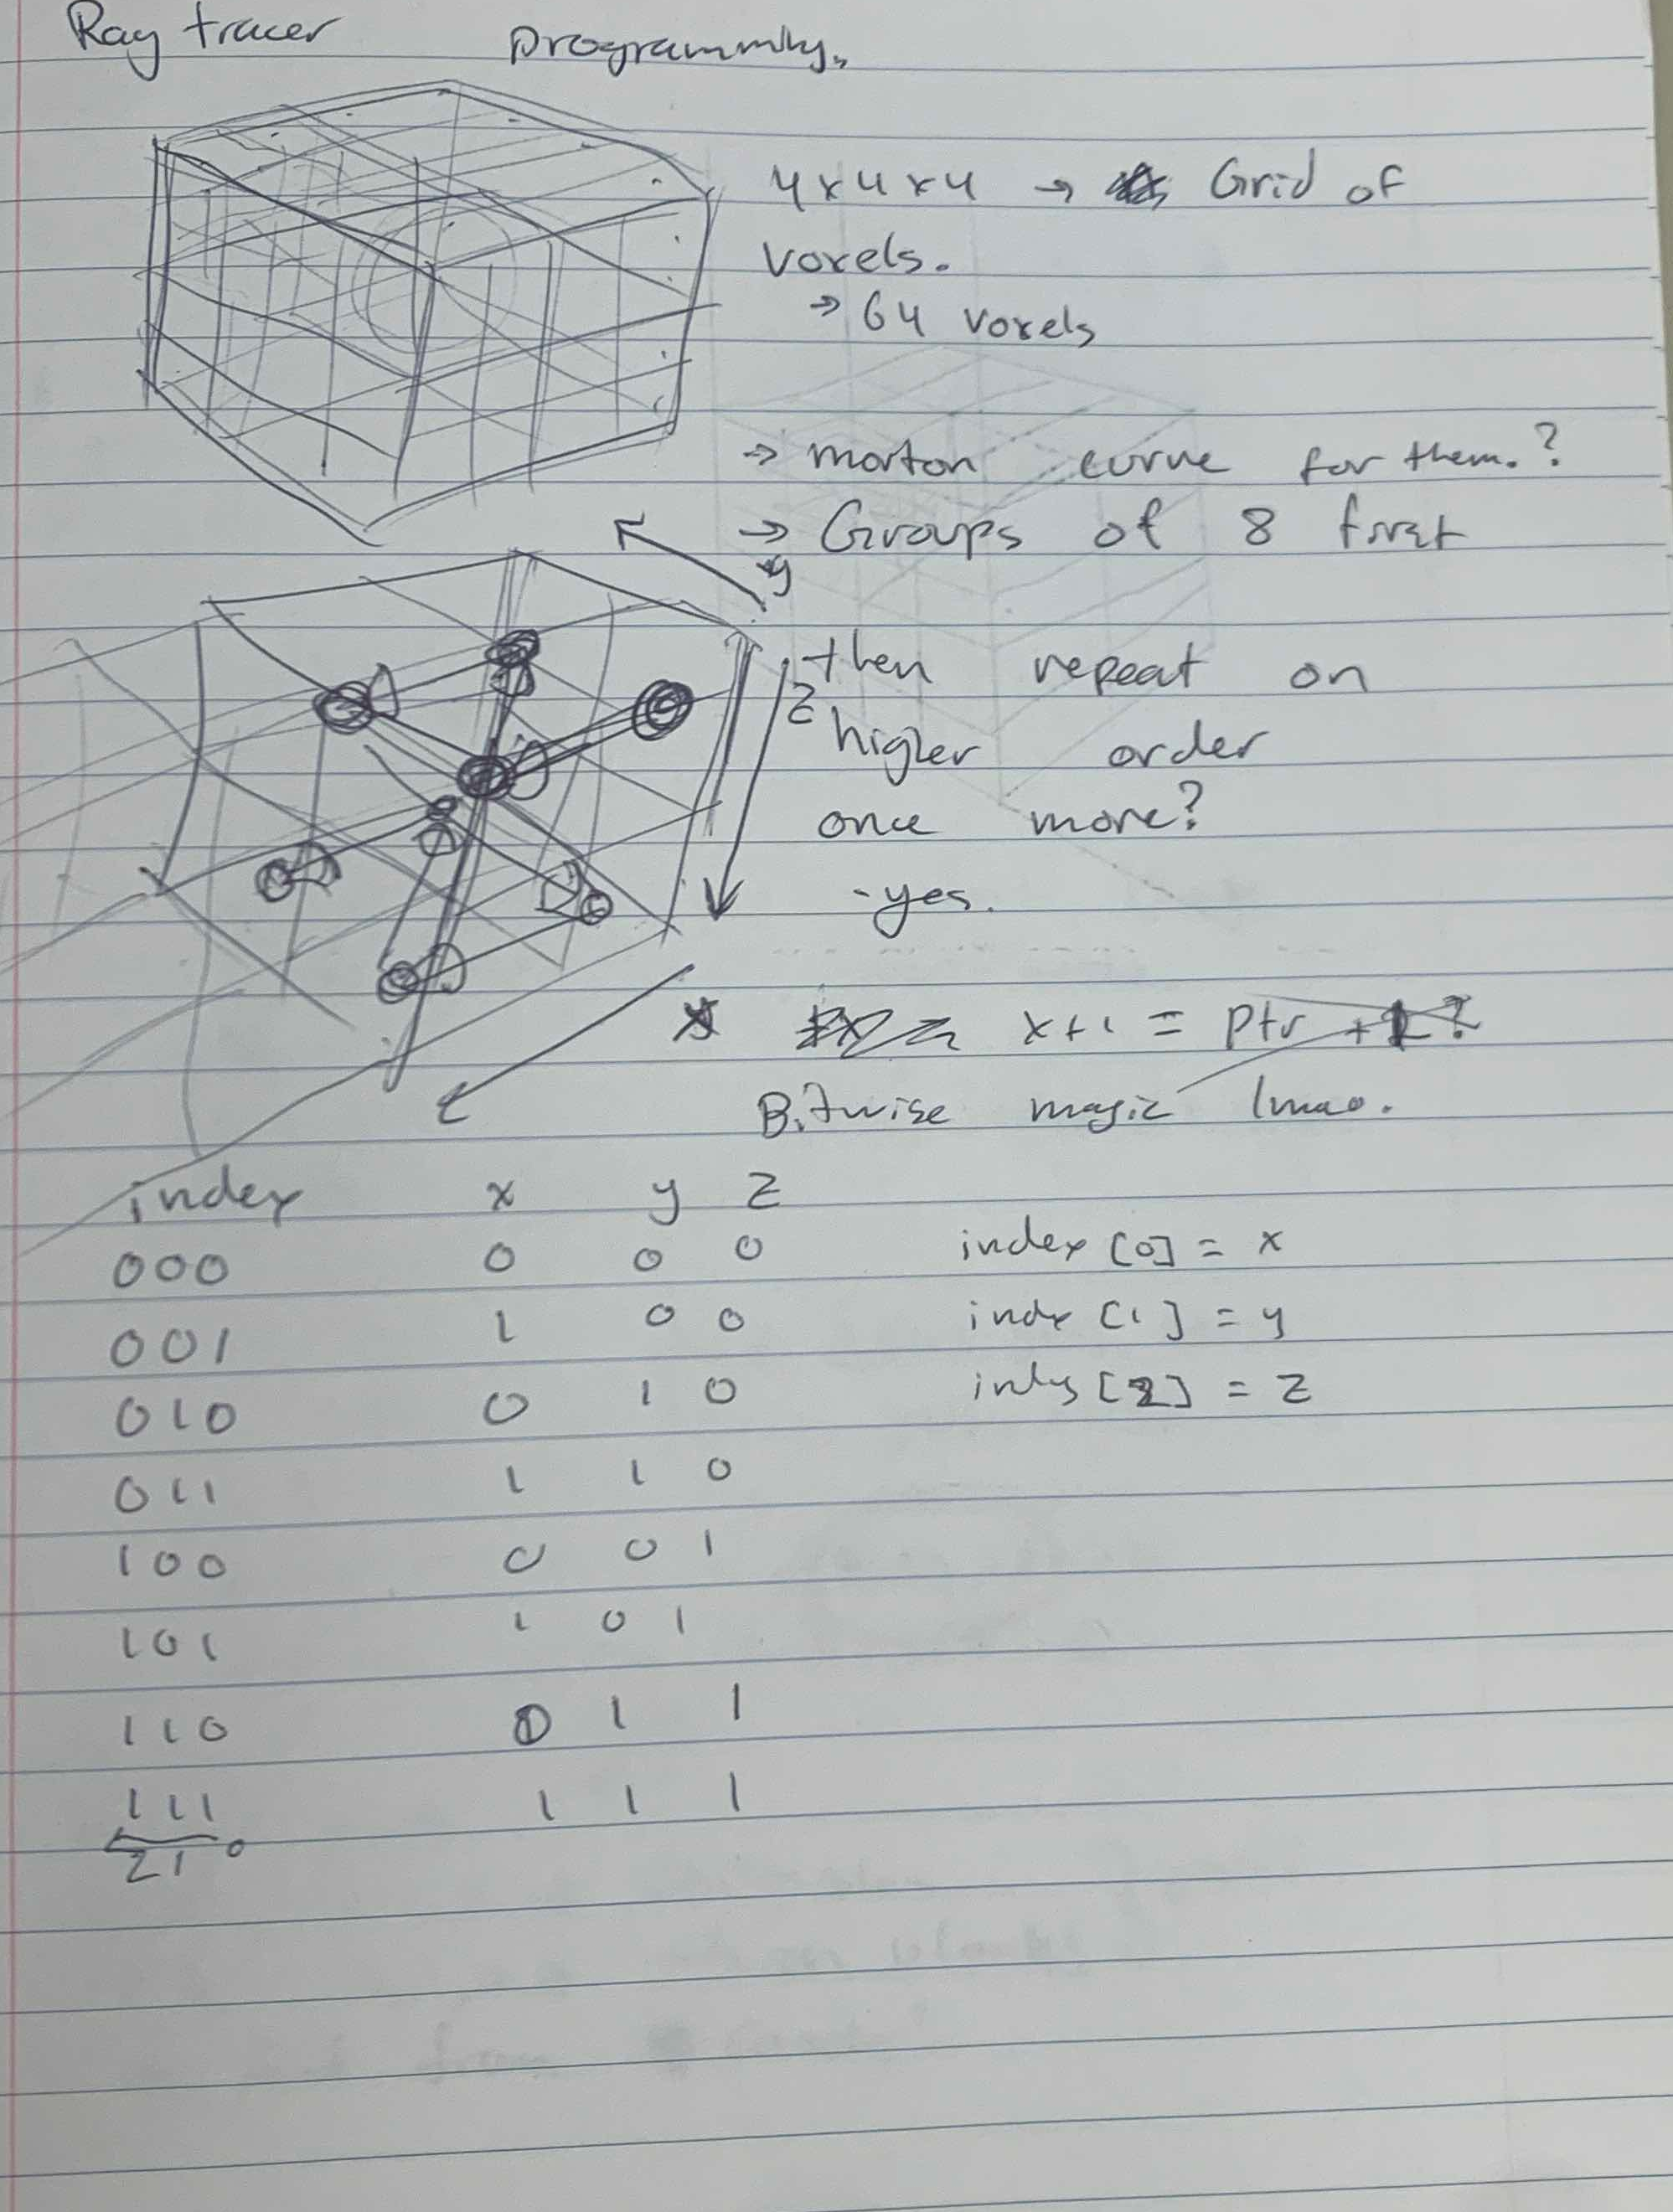 Ray tracer programming.
4x4x4 → Grid of
voxels.
→ 64 voxels
→ morton curve for them.?
→ Groups of 8 first
y
then repeat on
z
higher order
once more?
-yes.
x x+1 = ptr + 1?
Bitwise magic lmao.
index x y z
000 0 0 0 index [0] = x
001 1 0 0 index [1] = y
010 0 1 0 index [2] = z
011 1 1 0
100 0 0 1
101 1 0 1
110 0 1 1
111 1 1 1
210